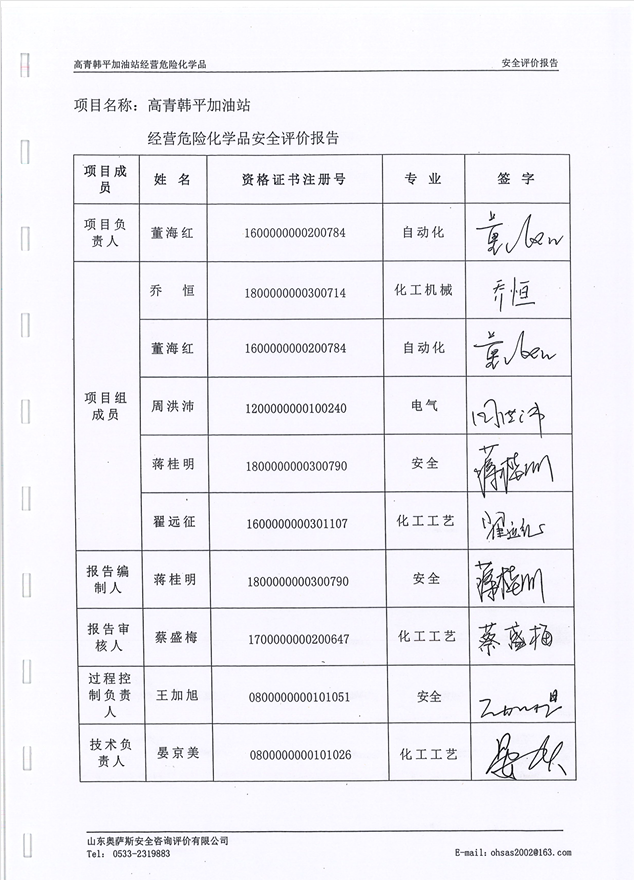 高青韩平加油站经营危险化学品 安全评价报告
项目名称：高青韩平加油站
经营危险化学品安全评价报告
项目成员 姓 名 资格证书注册号 专 业 签 字
项目负责人 董海红 1600000000200784 自动化
项目组成员 乔 恒 1800000000300714 化工机械 乔恒
董海红 1600000000200784 自动化
周洪沛 1200000000100240 电气 周洪沛
蒋桂明 1800000000300790 安全 蒋桂明
翟远征 1600000000301107 化工工艺 翟远征
报告编制人 蒋桂明 1800000000300790 安全 蒋桂明
报告审核人 蔡盛梅 1700000000200647 化工工艺 蔡盛梅
过程控制负责人 王加旭 0800000000101051 安全
技术负责人 晏京美 0800000000101026 化工工艺
山东奥萨斯安全咨询评价有限公司
Tel: 0533-2319883 E-mail:ohsas2002@163.com